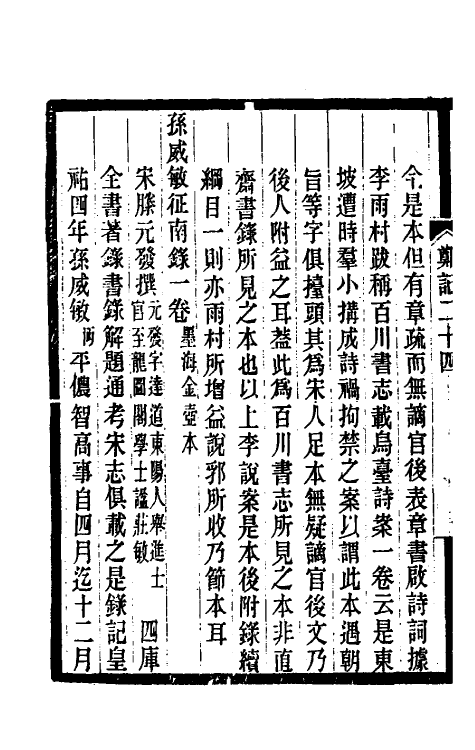 今是本但有章疏而無謫官後表章書啟詩詞據
李雨村跋稱百川書志載烏臺詩案一卷云是東
坡遭時羣小搆成詩禍拘禁之案以謂此本遇朝
旨等字俱擡頭其爲宋人足本無疑謫官後文乃
後人附益之耳蓋此爲百川書志所見之本非直
齋書錄所見之本也以上李說案是本後附錄續
綱目一則亦雨村所增益說郛所收乃節本耳
孫威敏征南錄一卷墨海金壺本
宋滕元發撰元發字達道東陽人舉進士官至龍圖閣學士謚莊敏四庫
全書著錄書錄解題通考宋志俱載之是錄記皇
祐四年孫威敏沔平儂智高事自四月迄十二月
鄭記二十四